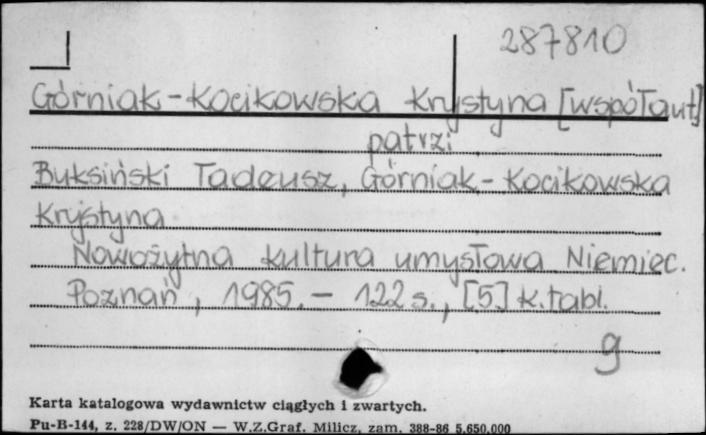 287810
Górniak-Kocikowska Krystyna [współaut]
patrzi
Buksiński Tadeusz, Górniak-Kocikowska
Krystyna
Nowożytna kultura umysłowa Niemiec.
Poznań, 1985. - 122 s., [5] k. tabl.
g
Karta katalogowa wydawnictw ciągłych i zwartych.
Pu-B-144, z. 228/DW/ON — W.Z.Graf. Milicz, zam. 388-86 5.650.000